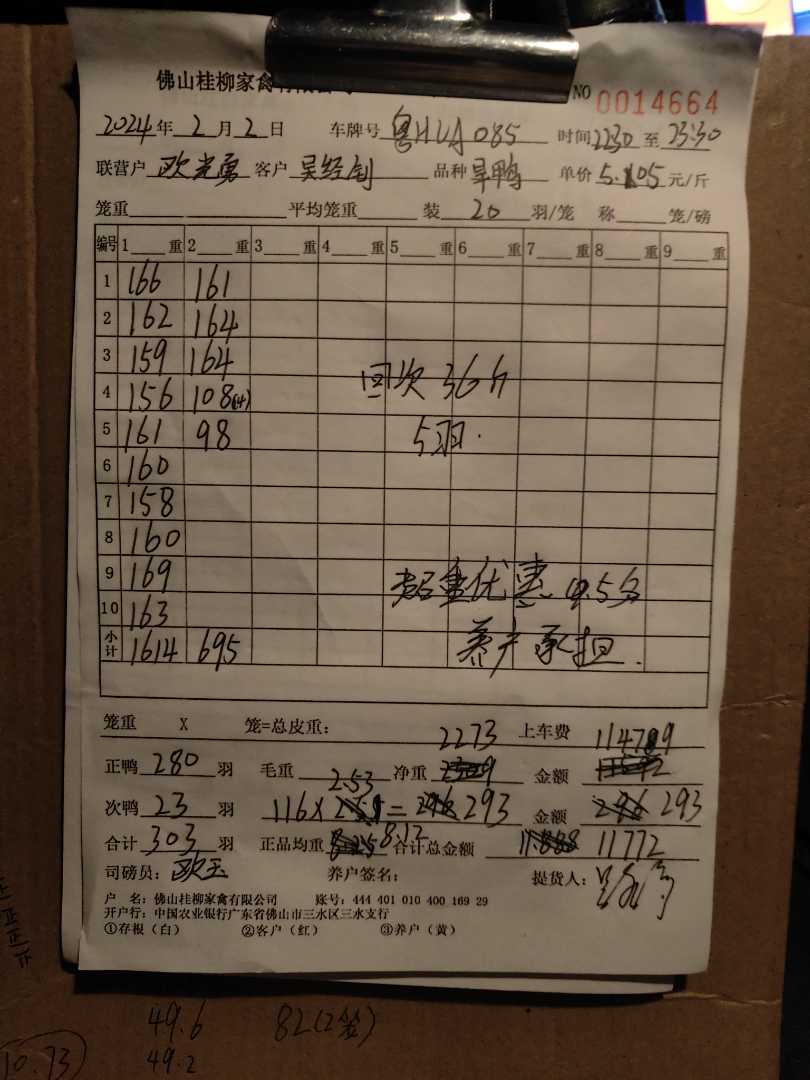 佛山桂柳家禽有限公司 NO 0014664
2024年 2月 2日 车牌号 粤HUA085 时间2230至23:30
联营户 欧光勇 客户 品种 单价 5.105 元/斤
笼重 平均笼重 装 20 羽/笼 称 笼/磅
编号 1 重 2 重 3 重 4 重 5 重 6 重 7 重 8 重 9 重
1 166 161
2 162 164
3 159 164
4 156 108(14)
5 161 98
6 160
7 158
8 160
9 169
10 163
小计 1614 695
回次 36斤
5羽.
超重优惠 4.5分
养户承担.
笼重 X 笼=总皮重: 上车费
正鸭 280 羽 毛重 净重 2273 金额 114709
次鸭 23 羽 116×2.53=293 金额 293
合计 303 羽 正品均重 8.12 合计总金额 11772
司磅员: 欧玉 养户签名: 提货人:
户 名: 佛山桂柳家禽有限公司 账号: 444 401 010 400 169 29
开户行: 中国农业银行广东省佛山市三水区三水支行
①存根(白) ②客户(红) ③养户(黄)
49.6 82(2笼)
10.73 49.2